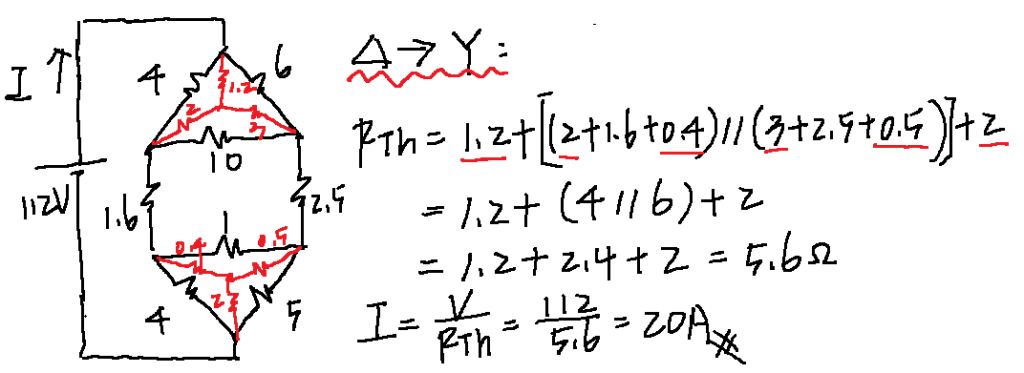 Δ→Y:
I ↑
4
6
1.2
2
3
10
RTh = 1.2+[(2+1.6+0.4)//(3+2.5+0.5)]+2
112V
1.6
2.5
= 1.2+(4//6)+2
1
0.4
0.5
= 1.2+2.4+2 = 5.6Ω
2
4
5
I = V/RTh = 112/5.6 = 20A